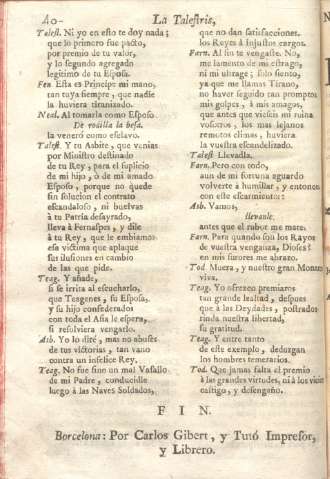 40
La Talestris.
Talest. Ni yo en esto te doy nada;
que lo primero fue pacto,
por premio de tu valor,
y lo segundo agregado
legitimo de tu Esposa.
Fen. Esta es Principe mi mano,
tan tuya siempre, que nadie
la huviera tiranizado.
Neal. Al tomarla como Esposo
De rodilla la besa.
la venero como esclavo.
Talest. Y tu Asbite, que venias
por Ministro destinado
de tu Rey, para el suplicio
de mi hijo, ò de mi amado
Esposo, porque no quede
sin solucion el contrato
escandaloso, ni buelvas
à tu Patria desayrado,
lleva à Fernaspes, y dile
à tu Rey, que le embiamos
esa victima que aplaque
sus ilusiones en cambio
de las que pide.
Teag. Y añade,
si se irrita al escucharlo,
que Teagenes, su Esposa,
y su hijo confederados
con toda el Asia le espera,
si resolviera vengarlo.
Asb. Yo lo diré, mas no abuses
de tus victorias, tan vano
contra un infelice Rey.
Teag. No fue sino un mal Vasallo
de mi Padre, conducidle
luego à las Naves Soldados,
que no dan satisfacciones
los Reyes à injustos cargos.
Farn. Al fin te vengaste. No,
me lamento de mi estrago,
ni mi ultrage; solo siento,
ya que me llamas Tirano,
no haver seguido tan promptos
mis golpes, à mis amagos,
que antes que vieseis mi ruina
vosotros, los mas lejanos
remotos climas, huviera
la vuestra escandelizado.
Talest. Llevadla.
Farn. Pero con todo,
aun de mi fortuna aguardo
volverte à humillar, y entonces
con este escarmiento:
Asb. Vamos,
llevanle.
antes que el rabor me mate.
Farn. Para quando son los Rayos
de vuestra venganza, Dioses?
en mis furores me abrazo.
Tod. Muera, y nuestro gran Monarca
viva.
Teag. Yo ofrezco premiaros
tan grande lealtad, despues
que à las Deydades, postrados
rinda nuestra libertad,
su gratitud.
Teag. Y entre tanto
de este exemplo, deduzgan
los hombres temerarios.
Tod. Que jamas falta el premio
à las grandes virtudes, ni à los vicios
castigo, y desengaño.
FIN.
Barcelona: Por Carlos Gibert, y Tutó Impresor,
y Librero.